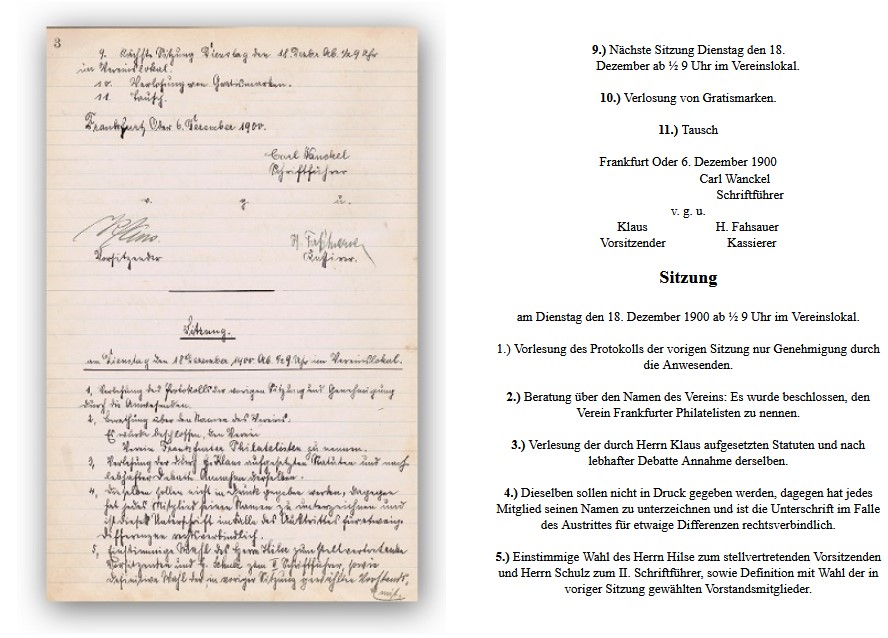 3
9. Nächste Sitzung Dienstag den 18. Dezbr. Ab. ½9 Uhr
im Vereinslokal.
10. Verlosung von Gratismarken.
11. Tausch.
Frankfurt Oder 6. Dezember 1900.
Carl Wanckel
Schriftführer
v. g. u.
Klaus. H. Fahsauer
Vorsitzender Kassirer.
Sitzung.
am Dienstag den 18. Dezember 1900. Ab. ½9 Uhr im Vereinslokal.
1, Verlesung des Protokolls der vorigen Sitzung und Genehmigung
durch die Anwesenden.
2, Berathung über den Namen des Vereins.
Es wurde beschlossen, den Verein
Verein Frankfurter Philatelisten zu nennen.
3, Verlesung der durch H. Klaus aufgesetzten Statuten und nach
lebhafter Debatte Annahme derselben.
4, Dieselben sollen nicht in Druck gegeben werden, dagegen
hat jedes Mitglied seinen Namen zu unterzeichnen und
ist diese Unterschrift im Falle des Austrittes für etwaige
Differenzen rechtsverbindlich.
5, Einstimmige Wahl des Herrn Hilse zum stellvertretenden
Vorsitzenden und H. Schulz zum II Schriftführer, sowie
definitive Wahl der in voriger Sitzung gewählten Vorstands-
9.) Nächste Sitzung Dienstag den 18.
Dezember ab ½ 9 Uhr im Vereinslokal.
10.) Verlosung von Gratismarken.
11.) Tausch
Frankfurt Oder 6. Dezember 1900
Carl Wanckel
Schriftführer
v. g. u.
Klaus H. Fahsauer
Vorsitzender Kassierer
Sitzung
am Dienstag den 18. Dezember 1900 ab ½ 9 Uhr im Vereinslokal.
1.) Vorlesung des Protokolls der vorigen Sitzung nur Genehmigung durch
die Anwesenden.
2.) Beratung über den Namen des Vereins: Es wurde beschlossen, den
Verein Frankfurter Philatelisten zu nennen.
3.) Verlesung der durch Herrn Klaus aufgesetzten Statuten und nach
lebhafter Debatte Annahme derselben.
4.) Dieselben sollen nicht in Druck gegeben werden, dagegen hat jedes
Mitglied seinen Namen zu unterzeichnen und ist die Unterschrift im Falle
des Austrittes für etwaige Differenzen rechtsverbindlich.
5.) Einstimmige Wahl des Herrn Hilse zum stellvertretenden Vorsitzenden
und Herrn Schulz zum II. Schriftführer, sowie Definition mit Wahl der in
voriger Sitzung gewählten Vorstandsmitglieder.